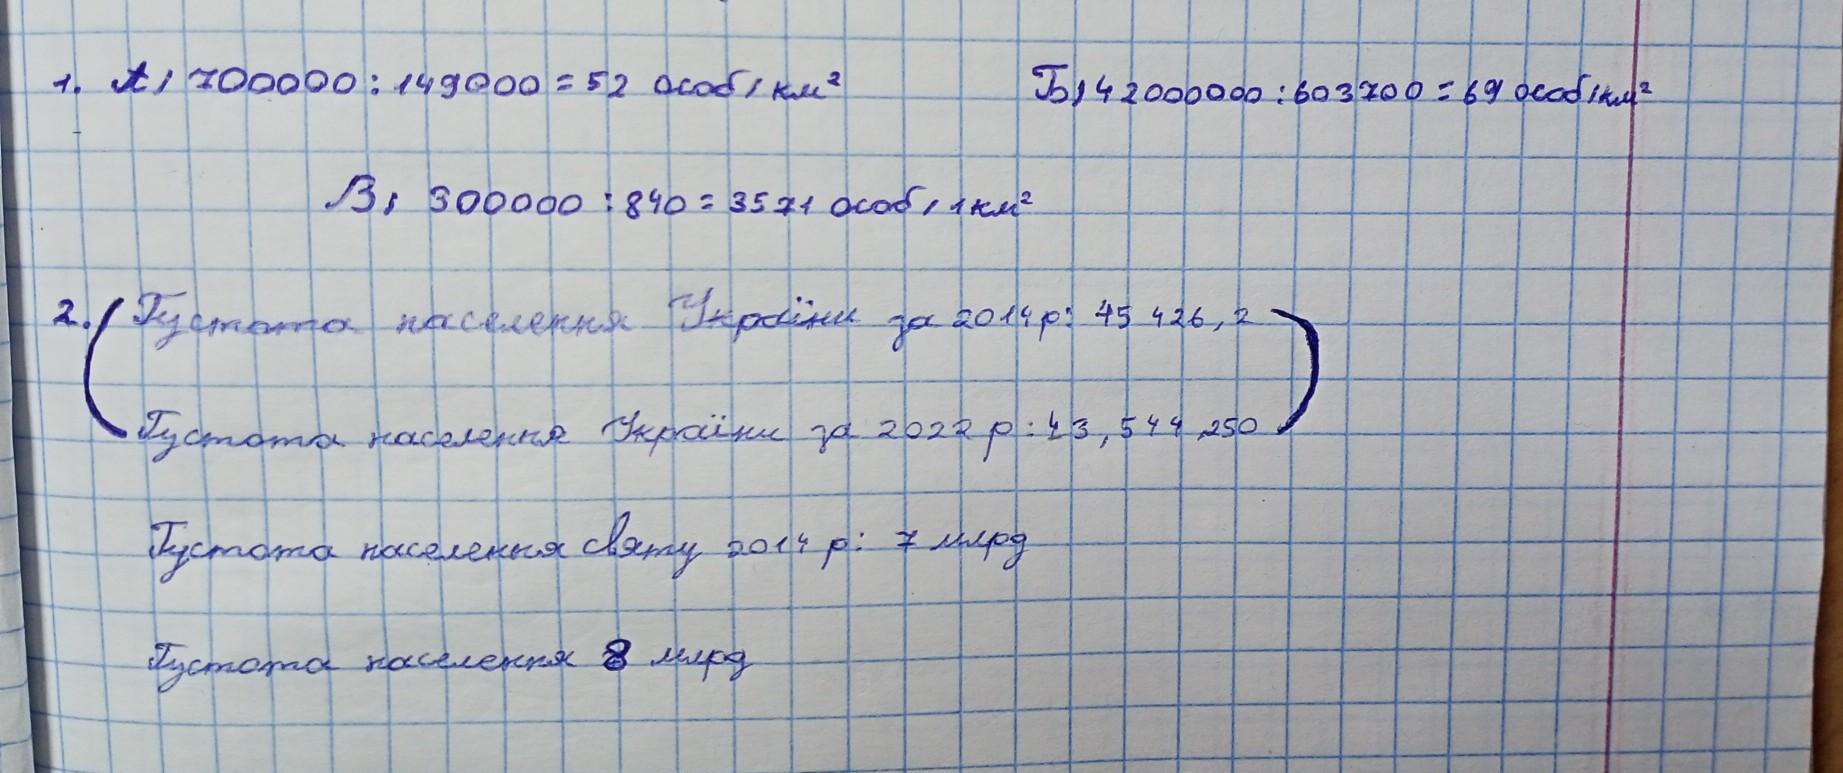 1. А, 700000 : 149000 = 52 особ/км² Б, 42000000 : 603700 = 69 особ/км²
В, 300000 : 840 = 3571 особ, 1км²
2. (Густота населення України за 2014 р: 45 426, 2
Густота населення України за 2022 р: 43, 544, 250)
Густота населення святу 2014 р: 7 млрд
Густота населення 8 млрд